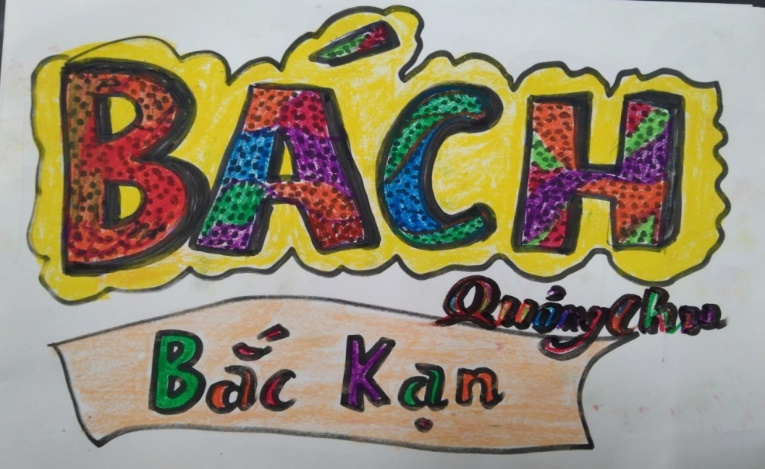 BÁCH
Quảng Chu
Bắc Kạn